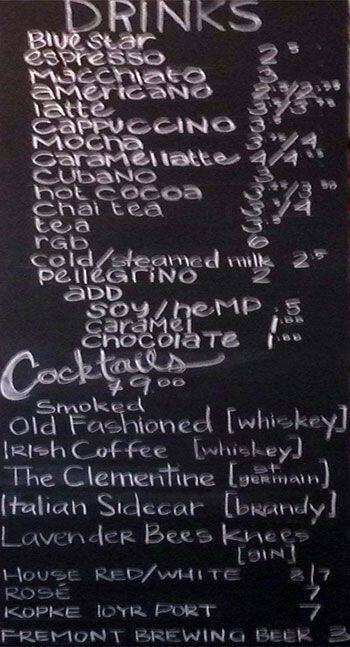 DRINKS
Bluestar
espresso 2.5
Macchiato 3
americano
latte
Cappuccino 3
Mocha
Caramel latte
Cubano 3
hot cocoa
Chai tea
tea 3
rgb 6
cold/steamed milk 2.5
pellegrino 2
add
soy/hemp .5
caramel 1.00
chocolate 1.00
Cocktails
$9.00
Smoked
Old Fashioned [whiskey]
Irish Coffee [whiskey]
The Clementine [St germain]
Italian Sidecar [brandy]
Lavender Bees Knees
[GIN]
HOUSE RED/WHITE 8/7
ROSÉ 7
KOPKE 10YR PORT 7
FREMONT BREWING BEER 3